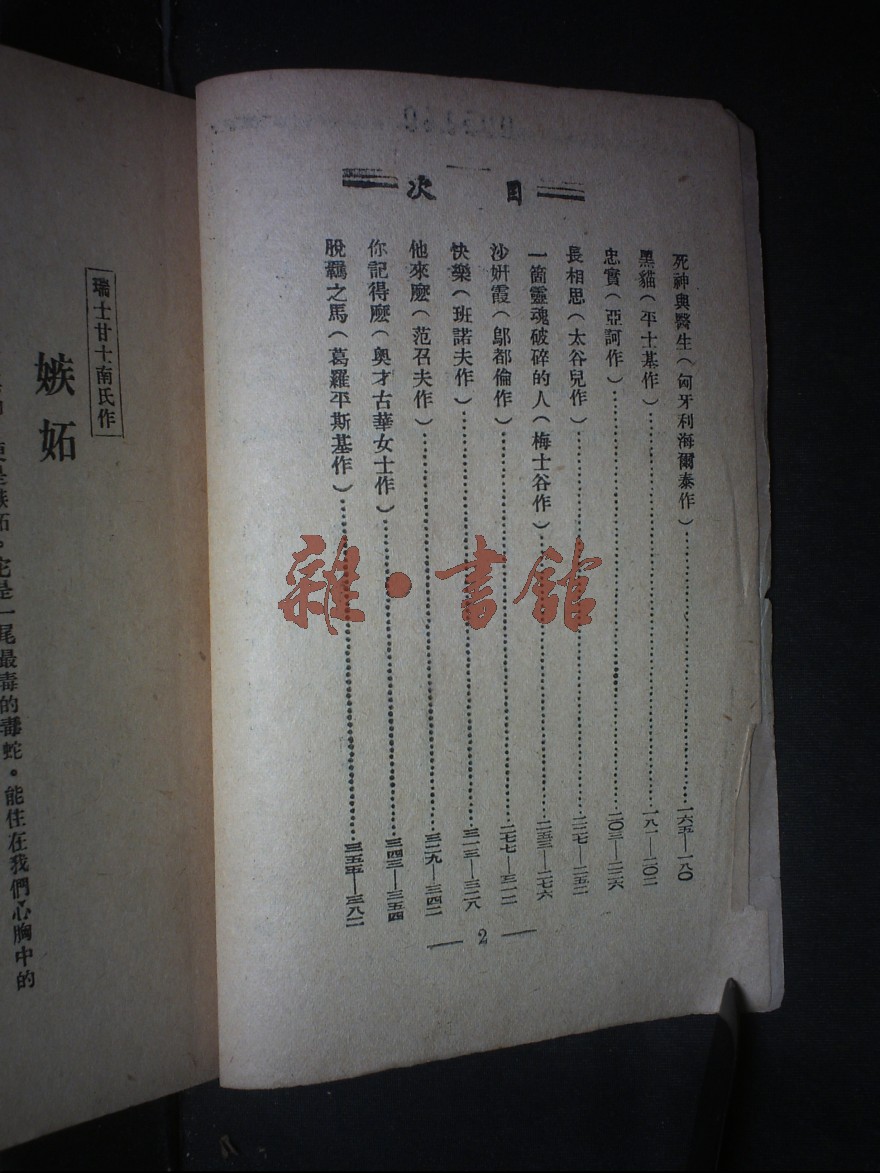 目次
死神與醫生（匈牙利海爾泰作）⋯⋯一六五—一八〇
黑貓（平士基作）⋯⋯一八一—二〇二
忠實（亞訶作）⋯⋯二〇三—二二六
長相思（太谷兒作）⋯⋯二二七—二五二
一箇靈魂破碎的人（梅士谷作）⋯⋯二五三—二七六
沙妍霞（鄔都倫作）⋯⋯二七七—三一二
快樂（班諾夫作）⋯⋯三一三—三二八
他來麽（范召夫作）⋯⋯三二九—三四二
你記得麽（奧才古華女士作）⋯⋯三四三—三五四
脫羈之馬（葛羅平斯基作）⋯⋯三五五—三八二
— 2 —
雜·書館
瑞士甘士南氏作
嫉妬
嫉妬。它是一尾最毒的毒蛇。能住在我們心胸中的